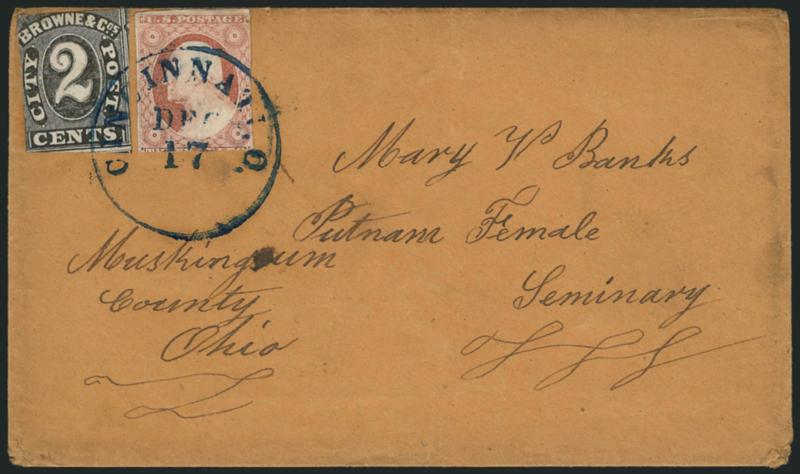 BROWNE & Co's
CITY POST
2
CENTS
U.S. POSTAGE
CINCINNATI. O.
DEC
17
Mary V Banks
Putnam Female
Seminary
Muskingum
County
Ohio